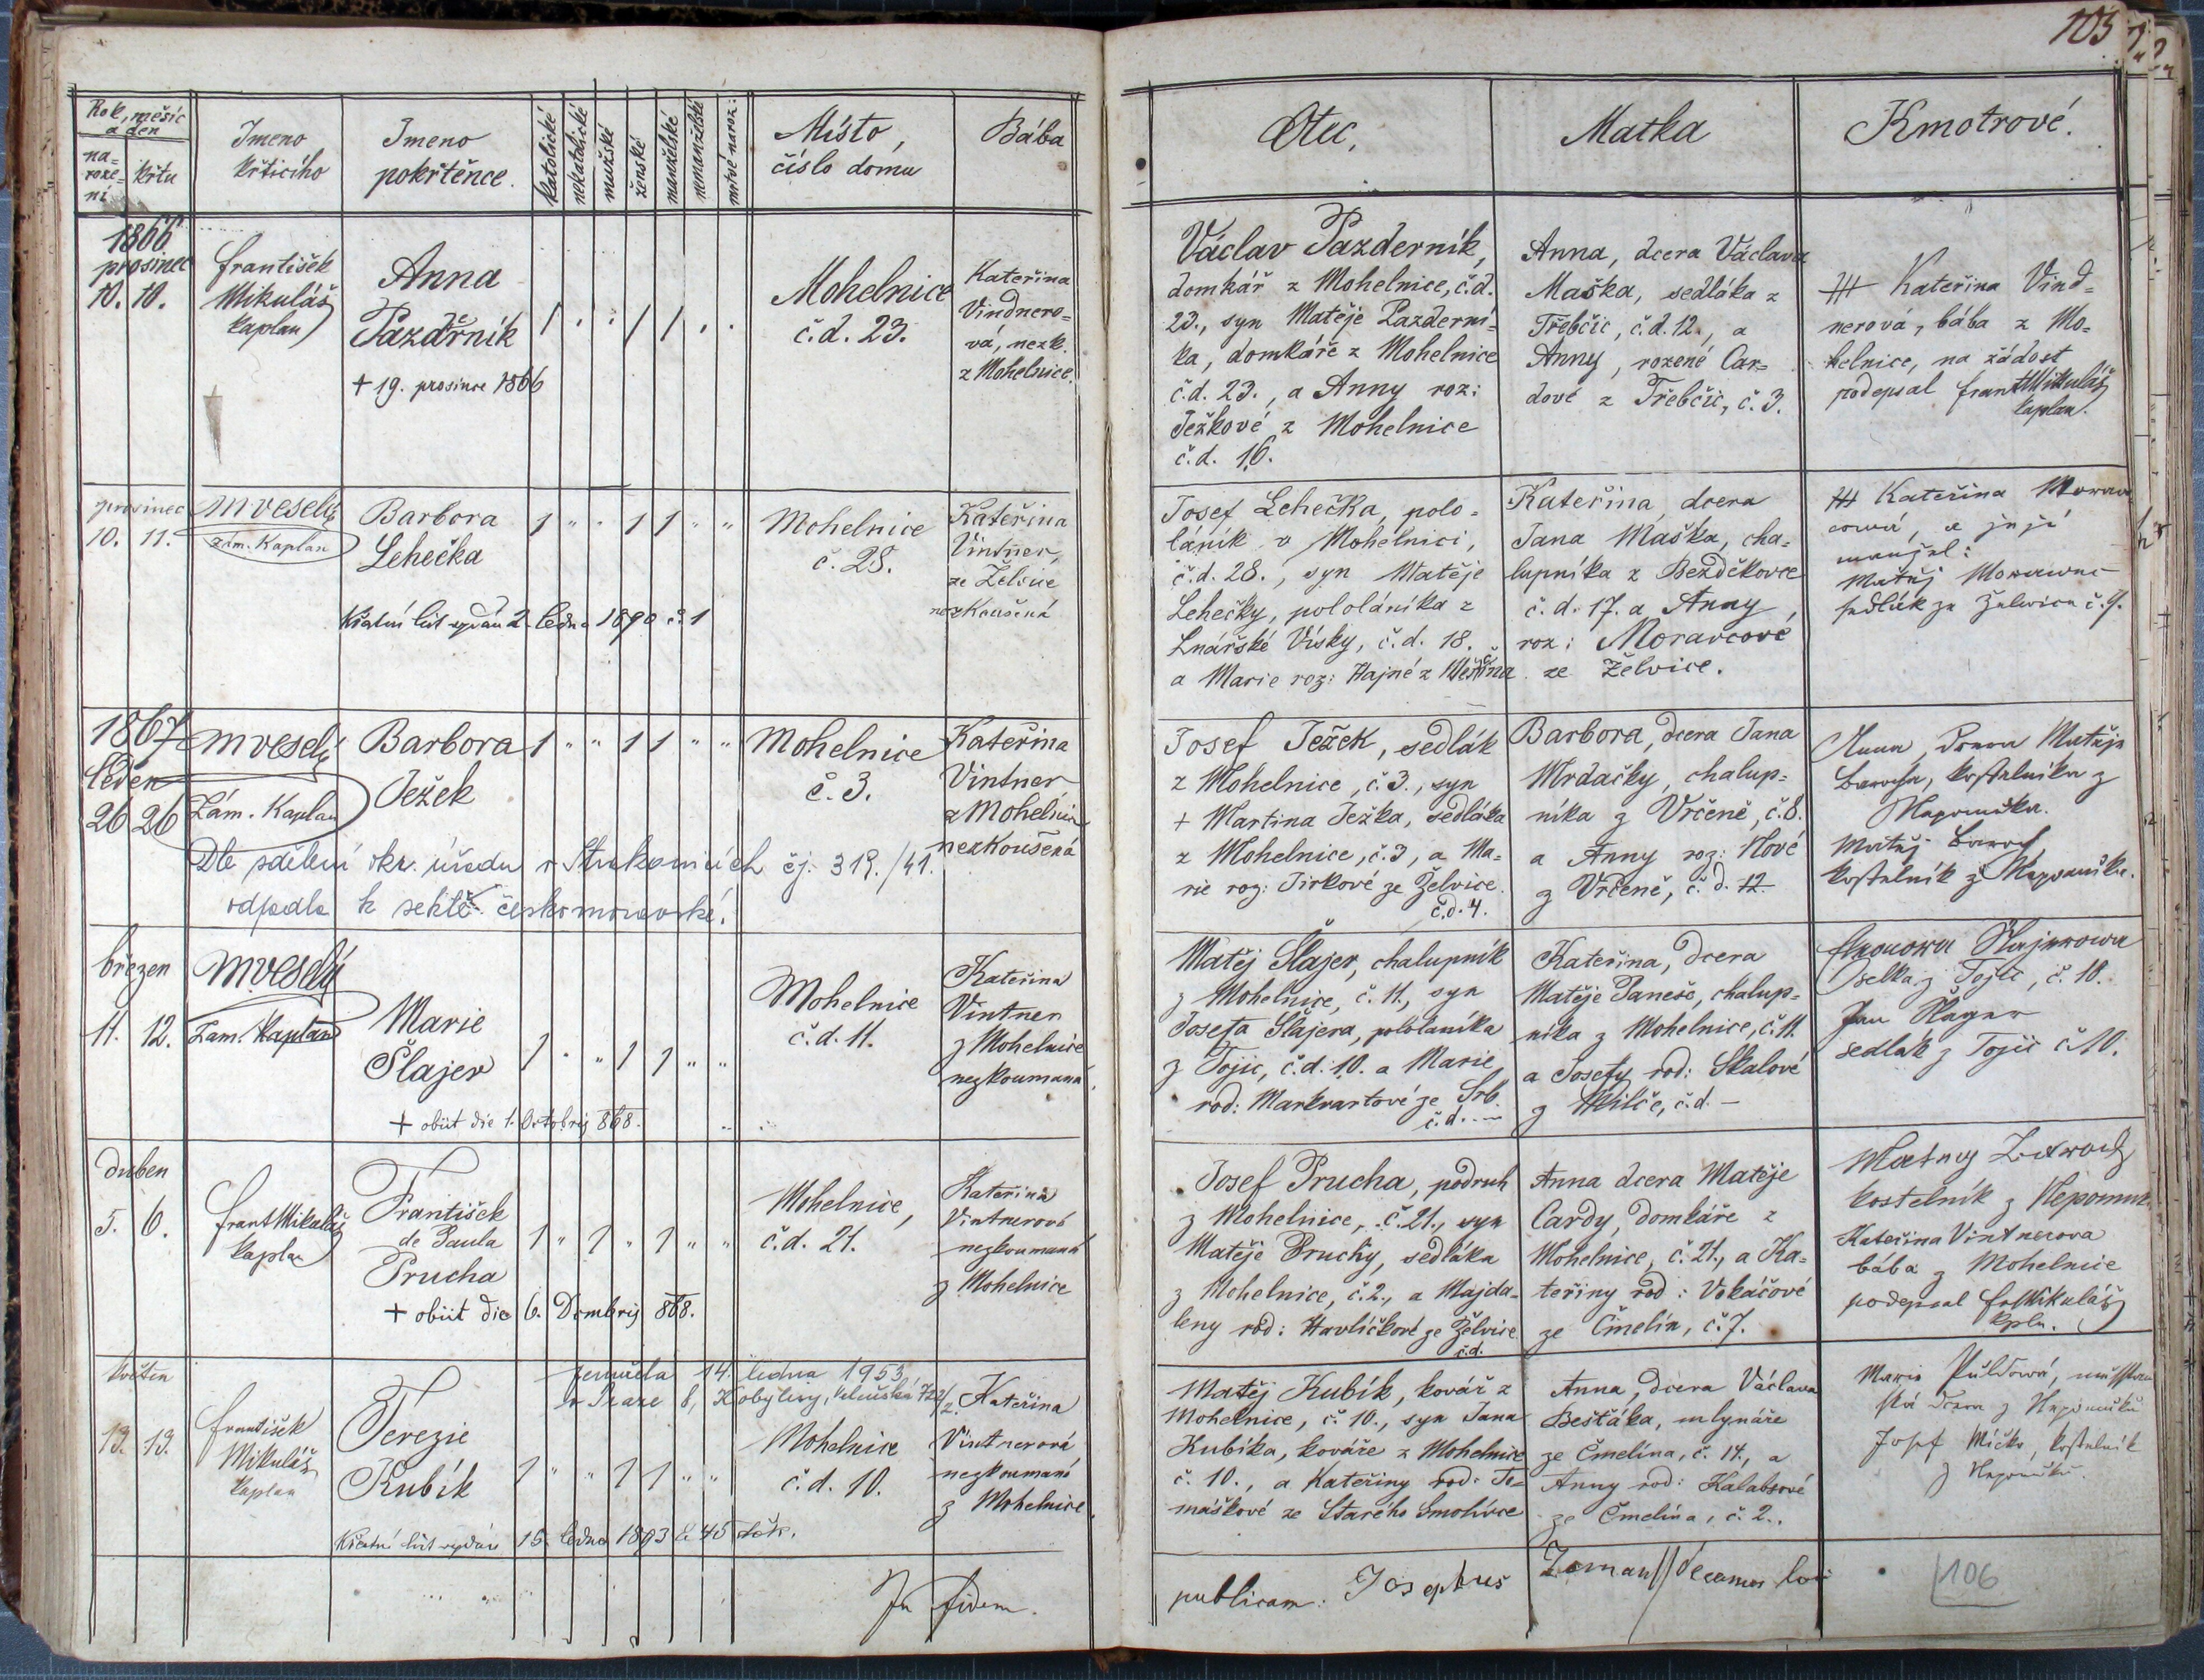 103
Rok, měsíc
a den
na-
roze-
ní
křtu
Jmeno
křticího
Jmeno
pokřtěnce.
katolické
nekatolické
mužské
ženské
manželské
nemanželské
mrtvé naroz:
Místo,
číslo domu
Bába
Otec,
Matka
Kmotrové.
1866
prosinec
10. 10.
František
Mikuláš
kaplan
Anna
Pazderník
+ 19. prosince 1866
1 . . 1 1 . .
Mohelnice
č.d. 23.
Kateřina
Vindnero-
vá, nezk.
z Mohelnice.
Václav Pazderník,
domkář z Mohelnice, č.d.
23., syn Matěje Pazderní-
ka, domkáře z Mohelnice
č.d. 23., a Anny roz:
Ježkové z Mohelnice
č.d. 16.
Anna, dcera Václava
Maška, sedláka z
Třebčic, č.d. 12., a
Anny, rozené Car-
dové z Třebčic, č. 3.
+++ Kateřina Vind-
nerová, bába z Mo-
helnice, na žádost
podepsal Frant Mikuláš
kaplan.
prosinec
10. 11.
M Veselý
zám. Kaplan
Barbora
Lehečka
Křestní list vydán 2. ledna 1890 č. 1
1 " " 1 1 " "
Mohelnice
č. 28.
Kateřina
Vintner,
ze Želvice
nezkoušená
Josef Lehečka, polo-
láník v Mohelnici,
č.d. 28., syn Matěje
Lehečky, pololáníka z
Lnářské Vísky, č.d. 18.
a Marie roz: Hajné z
Kateřina, dcera
Jana Maška, cha-
lupníka z Bezděkovce
č.d. 17. a Anny,
roz: Moravcové
ze Želvice.
+++ Kateřina Morav
cowá, a její
manžel:
Matěj Morawec
sedlák ze Želwice č. 9.
1867
leden
26 26
M Veselý
Zám. Kaplan
Barbora
Ježek
1 " " 1 1 " "
Mohelnice
č. 3.
Kateřina
Vintner
z Mohelnice
nezkoušená
Dle sdělení okr. úřadu v Strakonicích čj. 319./41.
odpadla k sektě českomoravské.
Josef Ježek, sedlák
z Mohelnice, č. 3., syn
+ Martina Ježka, sedláka
z Mohelnice, č. 3, a Ma-
rie roz: Jirkové ze Želvice.
č.d. 4.
Barbora, dcera Jana
Mrdačky, chalup-
níka z Vrčeně, č. 8.
a Anny roz: Nové
z Vrčeně, č. d. 12
Anna, Dcera Matěje
kostelníka z
Nepomuka.
Matěj
kostelník z Nepomuku.
březen
11. 12.
M Veselý
Zam. Kaplan
Marie
Šlajer
+ obiit die 1. Octobris 868.
1 . " 1 1 " "
Mohelnice
č.d. 11.
Kateřina
Vintner
z Mohelnice
nezkoumaná.
Matěj Šlajer, chalupník
z Mohelnice, č. 11., syn
Josefa Šlajera, pololaníka
z Tojic, č.d. 10. a Marie
rod: Markvartové ze Srb.
č.d. —
Kateřina, dcera
Matěje Janeše, chalup-
níka z Mohelnice, č. 11.
a Josefy rod: Skalové
z Milče, č.d. —
Šlajerowa
selka z Tojic, č. 10.
Jan Šlager
sedlak z Tojic č 10.
duben
5. 6.
Frant Mikuláš
kaplan
František
de Paula
Prucha
+ obiit die 6. Dcembris 868.
1 " 1 " 1 " "
Mohelnice,
č.d. 21.
Kateřina
Vintnerová
nezkoumaná
z Mohelnice
Josef Prucha, podruh
z Mohelnice, č. 21., syn
Matěje Pruchy, sedláka
z Mohelnice, č. 2., a Majda-
leny rod: Havlíčkové ze Želvice
č.d.
Anna dcera Matěje
Cardy, domkáře z
Mohelnice, č. 21., a Ka-
teřiny rod: Vokáčové
ze Čmelín, č. 7.
kostelník z Nepomuk.
Kateřina Vintnerova
bába z Mohelnice
podepsal Fr Mikuláš
kpln.
květen
13. 13.
František
Mikuláš
kaplan
Terezie
Kubík
zemřela 14. ledna 1953,
v Praze 8, Kobylisy, 722/2.
1 " " 1 1 " "
Mohelnice
č.d. 10.
Kateřina
Vintnerová
nezkoumaná
z Mohelnice.
Křestní list vydán 15. ledna 1893 č. 45
Matěj Kubík, kovář z
Mohelnice, č. 10., syn Jana
Kubíka, kováře z Mohelnice
č. 10., a Kateřiny rod: To-
máškové ze Starého Smolivce
Anna, dcera Václava
Bešťáka, mlynáře
ze Čmelína, č. 14., a
Anny rod: Kalabsové
ze Čmelína, č. 2..
Marie
dcera z Nepomuku
Josef Míčko, kostelník
z Nepomuku.
In fidem
publicam: Josephus Zeman decanus loci
106